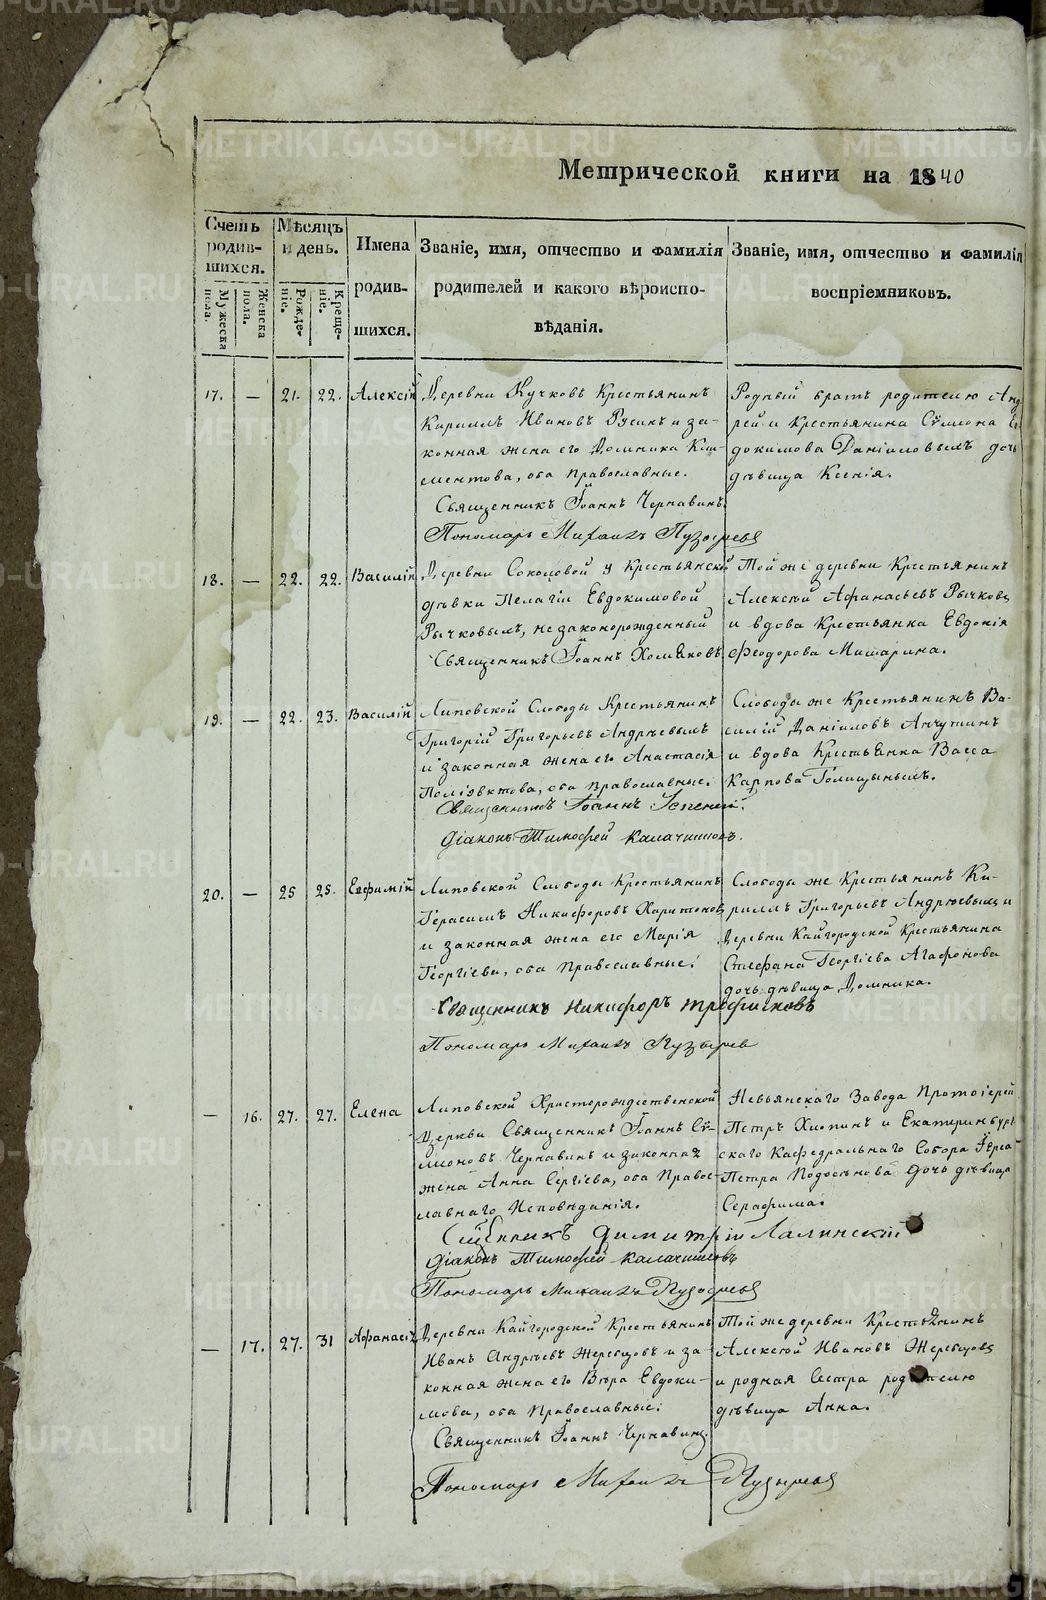 Метрической книги на 1840
Счетъ родив-шихся.
Мужеска пола.
Женска пола.
Мѣсяцъ и день.
Рожде-ніе.
Креще-ніе.
Имена родив-шихся.
Званіе, имя, отчество и фамилія
родителей и какого вѣроиспо-
вѣданія.
Званіе, имя, отчество и фамилія
воспріемниковъ.
17. — 21. 22. Алексій
Деревни Кучковъ Крестьянинъ
Кириллъ Ивановъ Русинъ и за-
конная жена его Домника
ментова, оба православные.
Священникъ Іоаннъ Чернавинъ.
Пономарь Михаилъ Пузыревъ
Родный братъ родителю Анд
рей и крестьянина Сѵмеона Ев
докимова Даніиловыхъ дочь
дѣвица Ксенія.
18. — 22. 22. Василій
Деревни Соколовой у крестьянской
дѣвки Пелагіи Евдокимовой
Рычковыхъ, незаконорожденный
Священникъ Іоаннъ Хомяковъ
Той же деревни Крестьянинъ
Алексѣй Афанасьевъ Рычковъ
и вдова крестьянка Евдокія
Феодорова Мишарина.
19. — 22. 23. Василій
Липовской Слободы Крестьянинъ
Григорій Григорьевъ Андрѣевыхъ
и законная жена его Анастасія
Поліевктова, оба православные.
Священникъ Іоаннъ
Діаконъ Тимофей Калачниковъ.
Слободы же Крестьянинъ Ва-
силій Даніиловъ Анчутинъ
и вдова Крестьянка Васса
Карпова Голицыныхъ.
20. — 25 25. Евфимій
Липовской Слободы Крестьянинъ
Герасимъ Никифоровъ Харитоновъ
и законная жена его Марія
Георгіева, оба православные.
Священникъ Никифоръ Трефиловъ
Пономарь Михаилъ Пузырев
Слободы же Крестьянинъ Ки-
риллъ Григорьевъ Андрѣевыхъ и
Деревни Кайгородской Крестьянина
Стефана Георгіева Агафонова
дочь дѣвица Домника.
— 16. 27. 27. Елена
Липовской Христорождественской
Церкви Священникъ Іоаннъ Сѵ-
меоновъ Чернавинъ и законная
жена Анна Сергіева, оба Право-
славнаго Исповѣданія.
Свщенникъ Димитрій Лалинскій
Діаконъ Тимофей Калачниковъ
Пономарь Михаилъ Пузыревъ
Невьянскаго Завода Протоіерей
Петръ Хлопинъ и Екатеринбург
скаго Кафедральнаго Собора Іерея
Петра Подосѣнова дочь дѣвица
Серафима.
— 17. 27. 31 Афанасія
Деревни Кайгородской Крестьянинъ
Иванъ Андрѣевъ Жеребцовъ и за-
конная жена его Вѣра Евдоки-
мова, оба православные.
Священникъ Іоаннъ Чернавинъ.
Пономарь Михаилъ Пузыревъ
Той же деревни Крестьянинъ
Алексѣй Ивановъ Жеребцовъ
и родная сестра родителю
дѣвица Анна.
METRIKI.GASO-URAL.RU